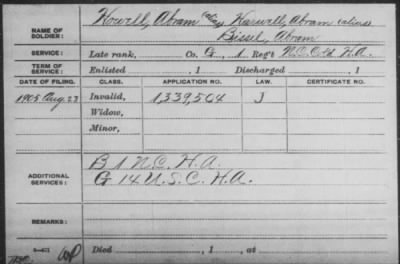 NAME OF SOLDIER: Howell, Abram alias Harwell, Abram (alias)
Bissel, Abram
SERVICE: Late rank, Co. G, 1 Reg't N.C. Cld. H.A.
TERM OF SERVICE: Enlisted , 1 Discharged , 1
DATE OF FILING. CLASS. APPLICATION NO. LAW. CERTIFICATE NO.
1905 Aug. 23 Invalid, 1,339,504 J
Widow,
Minor,
ADDITIONAL SERVICES: B 1 N.C. H.A.
G 14 U.S.C. H.A.
REMARKS:
Died , 1 , at